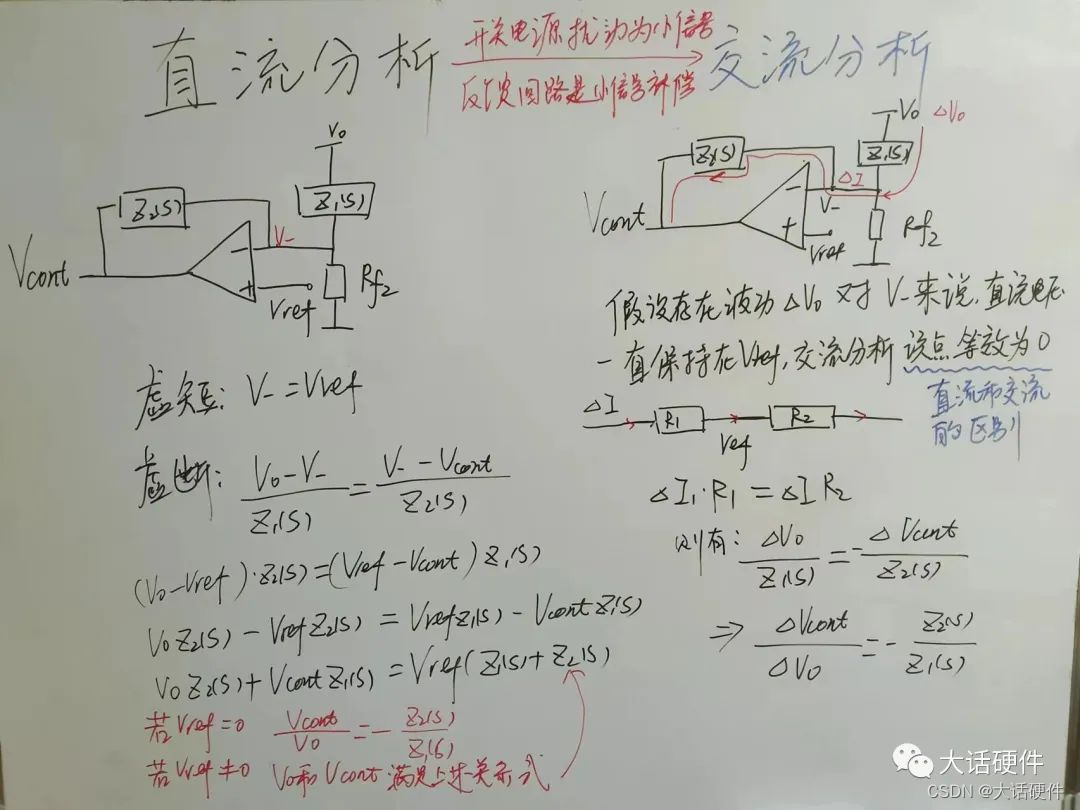 直流分析
开关电源扰动为小信号
反馈回路是小信号补偿
交流分析
Vo
Z₂(S)
Z₁(S)
V-
Vcont
-
+
Vref
Rf₂
虚短: V- = Vref
虚断: (Vo-V-)/Z₁(S) = (V- - Vcont)/Z₂(S)
(Vo-Vref)·Z₂(S)=(Vref-Vcont)Z₁(S)
VoZ₂(S) - VrefZ₂(S) = VrefZ₁(S) - VcontZ₁(S)
VoZ₂(S)+VcontZ₁(S) = Vref(Z₁(S)+Z₂(S)
若Vref=0 Vcont/Vo = - Z₂(S)/Z₁(S)
若Vref≠0 Vo和Vcont满足上述关系式
Vo ΔVo
Z₂(S)
Z₁(S)
ΔI
V-
Vcont
-
+
Vref
Rf₂
假设存在波动ΔVo 对 V-来说,直流电压
一直保持在Vref,交流分析 该点等效为0
直流和交流
的区别
ΔI
R₁
R₂
Vref
ΔI₁·R₁ = ΔI R₂
则有: ΔVo/Z₁(S) = -ΔVcont/Z₂(S)
⇒ ΔVcont/ΔVo = - Z₂(S)/Z₁(S)
大话硬件
CSDN @大话硬件